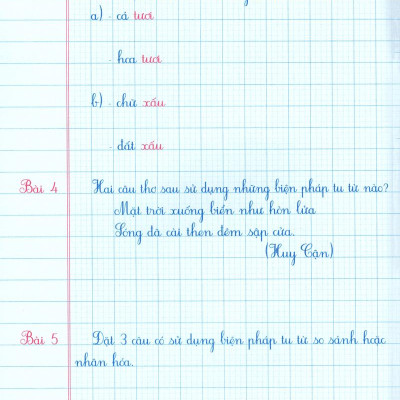 a) - cá tươi
- hoa tươi
b) - chữ xấu
- đất xấu
Bài 4 Hai câu thơ sau sử dụng những biện pháp tu từ nào?
Mặt trời xuống biển như hòn lửa
Sóng đã cài then đêm sập cửa.
(Huy Cận)
Bài 5 Đặt 3 câu có sử dụng biện pháp tu từ so sánh hoặc
nhân hóa.